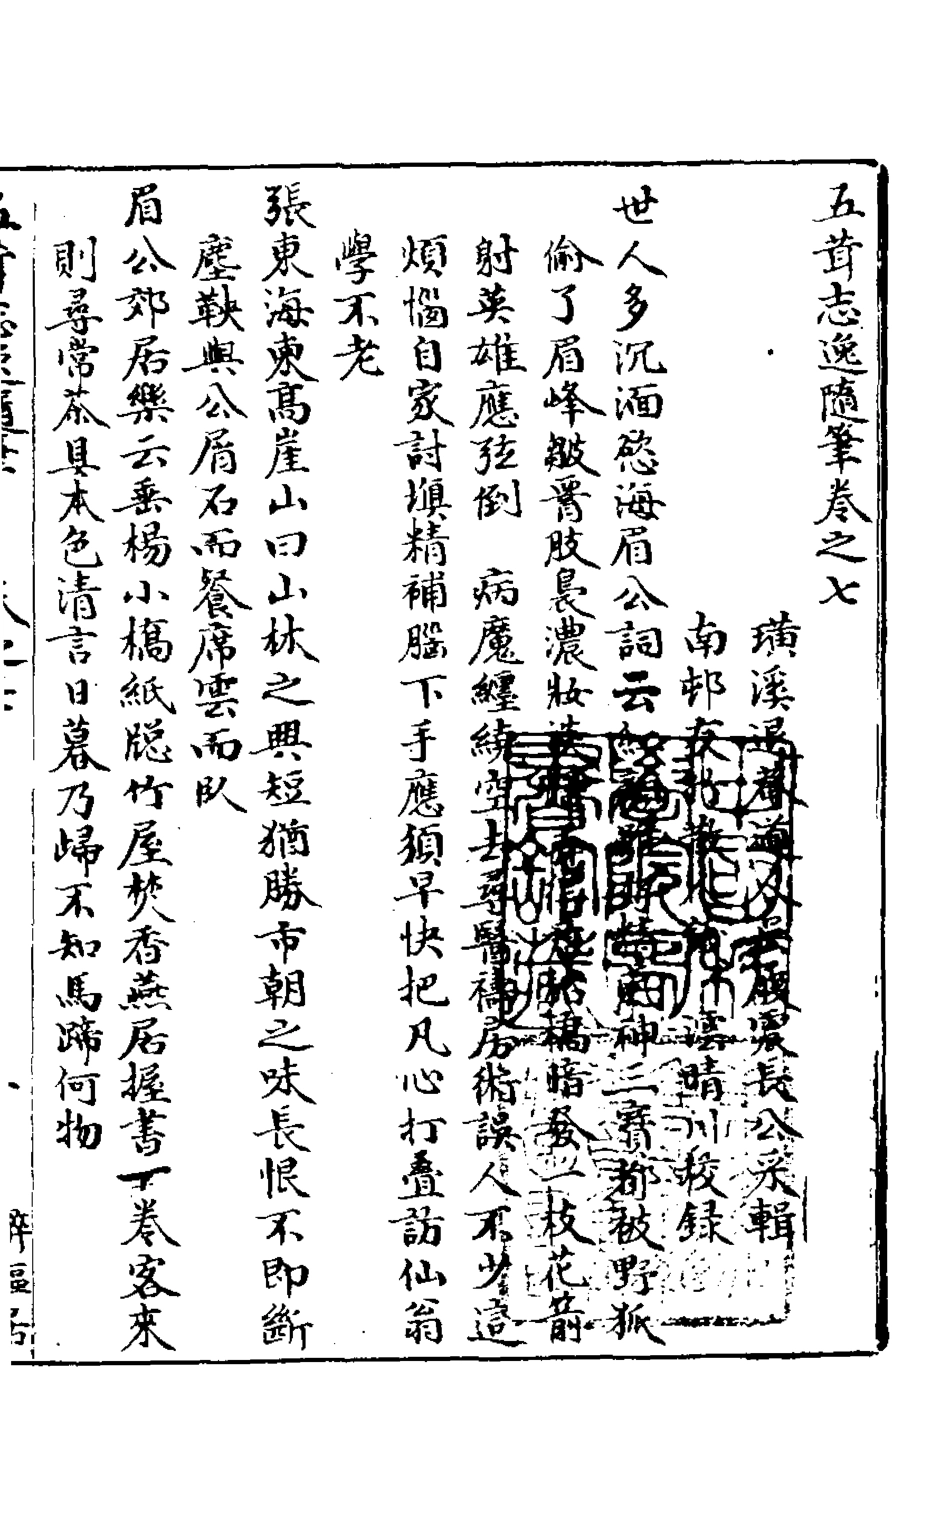 五茸志逸隨筆卷之七
璜溪退菴道人吳履震長公采輯
南邨友 散人 澐晴川較録
世人多沉湎慾海眉公詞云紅 時精氣神三寶都被野狐
偷了眉峰皺胷肢裊濃妝淡 暗發一枝花箭
射英雄應弦倒 病魔纏繞空去尋醫禱房術誤人不少這
煩惱自家討塡精補腦下手應須早快把凡心打疊訪仙翁
學不老
張東海東高崖山曰山林之興短猶勝市朝之味長恨不即斷
塵鞅與公屑石而餐席雲而臥
眉公郊居樂云垂楊小橋紙牕竹屋焚香燕居握書一卷客來
則尋常茶具本色清言日暮乃歸不知馬蹄何物